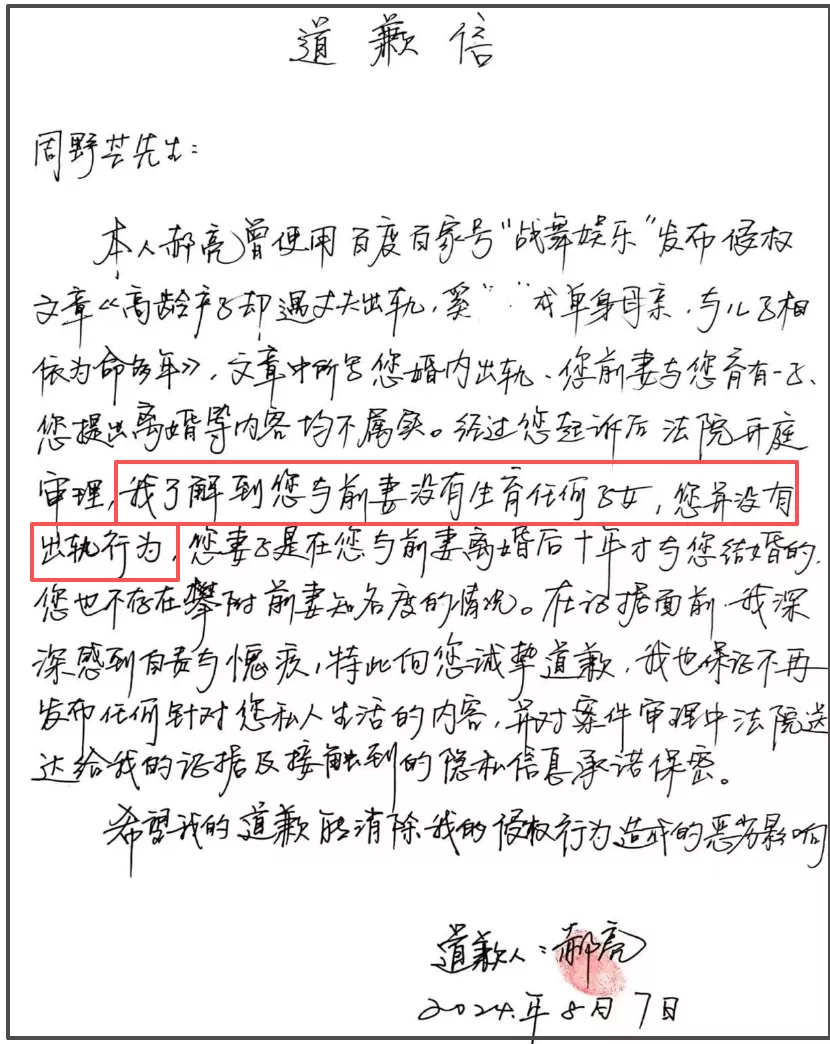 道歉信
周野芒先生：
本人郝亮曾使用百度百家号“战舞娱乐”发布侵权
文章《高龄产子却遇丈夫出轨，奚“ ”成单身母亲，与儿子相
依为命多年》，文章中所写您婚内出轨、您前妻与您育有一子、
您提出离婚等内容均不属实。经过您起诉后法院开庭
审理，我了解到您与前妻没有生育任何子女，您并没有
出轨行为，您妻子是在您与前妻离婚后十年才与您结婚的，
您也不存在攀附前妻知名度的情况。在证据面前，我深
深感到自责与愧疚，特此向您诚挚道歉，我也保证不再
发布任何针对您私人生活的内容，并对案件审理中法院送
达给我的证据及接触到的隐私信息承诺保密。
希望我的道歉能消除我的侵权行为造成的恶劣影响
道歉人：郝亮
2024年8月7日